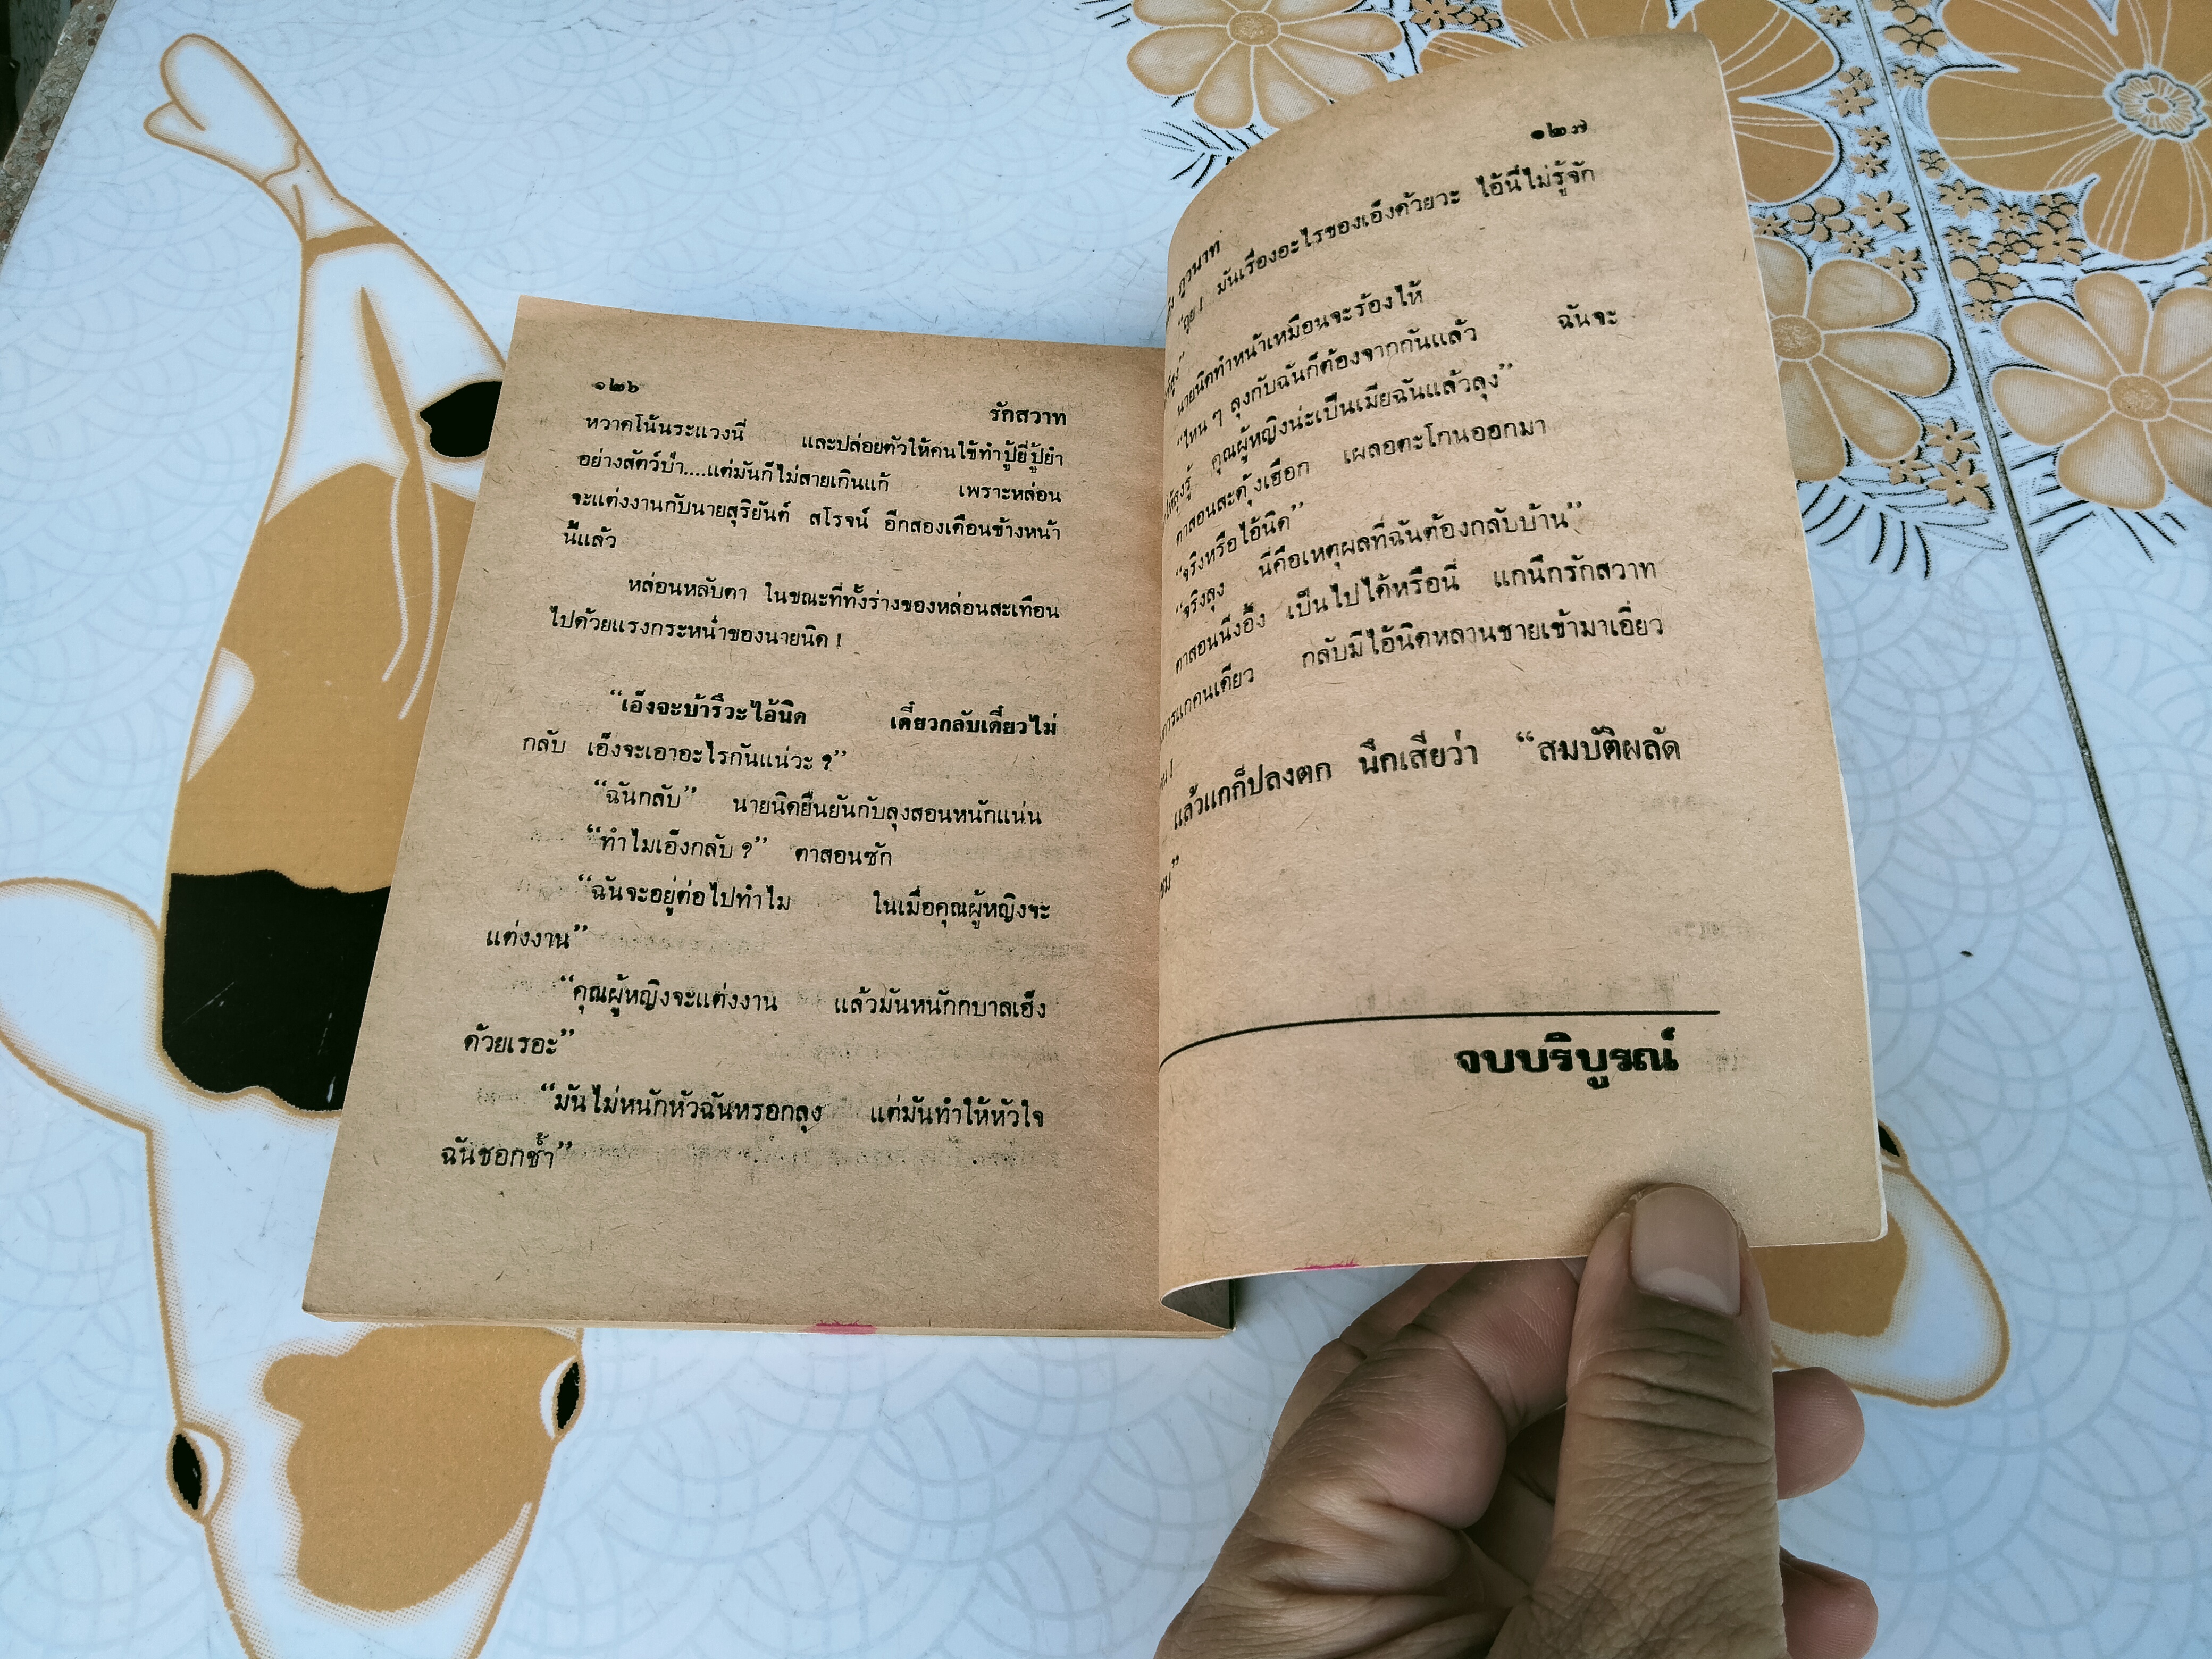 ๑๒๖
รักสวาท
หวาดโน้นระแวงนี่ และปล่อยตัวให้คนใช้ทำปู้ยี่ปู้ยำ
อย่างสัตว์ป่า....แต่มันก็ไม่สายเกินแก้ เพราะหล่อน
จะแต่งงานกับนายสุริยันต์ สโรจน์ อีกสองเดือนข้างหน้า
นี้แล้ว
หล่อนหลับตา ในขณะที่ทั้งร่างของหล่อนสะเทือน
ไปด้วยแรงกระหน่ำของนายนิด !
“เอ็งจะบ้ารึวะไอ้นิด เดี๋ยวกลับเดี๋ยวไม่
กลับ เอ็งจะเอาอะไรกันแน่วะ ?”
“ฉันกลับ” นายนิดยืนยันกับลุงสอนหนักแน่น
“ทำไมเอ็งกลับ ?” ตาสอนซัก
“ฉันจะอยู่ต่อไปทำไม ในเมื่อคุณผู้หญิงจะ
แต่งงาน”
“คุณผู้หญิงจะแต่งงาน แล้วมันหนักกบาลเอ็ง
ด้วยเรอะ”
“มันไม่หนักหัวฉันหรอกลุง แต่มันทำให้หัวใจ
ฉันชอกช้ำ”
๑๒๗
“ถุย ! มันเรื่องอะไรของเอ็งด้วยวะ ไอ้นี่ไม่รู้จัก
นายนิดทำหน้าเหมือนจะร้องไห้
“ไหน ๆ ลุงกับฉันก็ต้องจากกันแล้ว ฉันจะ
คุณผู้หญิงน่ะเป็นเมียฉันแล้วลุง”
ตาสอนสะดุ้งเฮือก เผลอตะโกนออกมา
“จริงหรือไอ้นิด”
“จริงลุง นี่คือเหตุผลที่ฉันต้องกลับบ้าน”
ตาสอนนิ่งอึ้ง เป็นไปได้หรือนี่ แกนึกรักสวาท
แกคนเดียว กลับมีไอ้นิดหลานชายเข้ามาเอี่ยว
แล้วแกก็ปลงตก นึกเสียว่า “สมบัติผลัด
จบบริบูรณ์